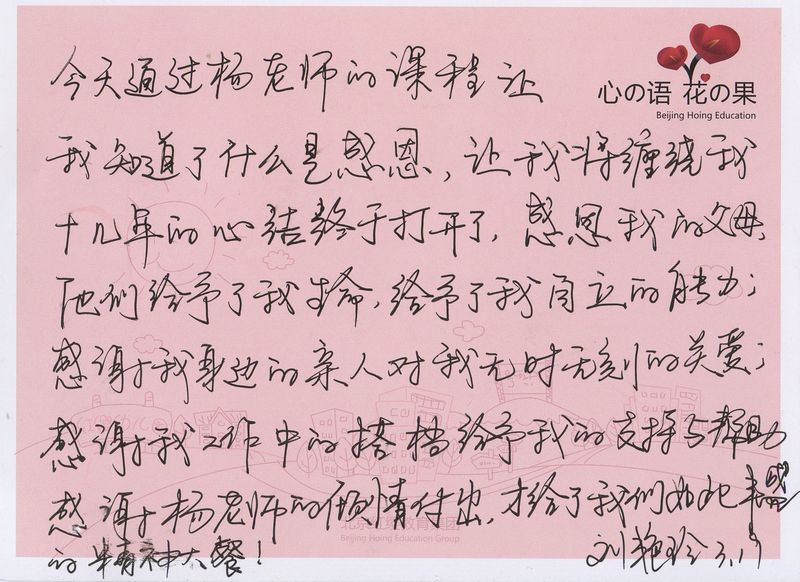 心の语 花の果
Beijing Hoing Education
今天通过杨老师的课程让
我知道了什么是感恩,让我将缠绕我
十几年的心结终于打开了,感恩我的父母,
他们给予了我生命,给予了我自立的能力;
感谢我身边的亲人对我无时无刻的关爱;
感谢我工作中的搭档给予我的支持与帮助
感谢杨老师的倾情付出,才给了我们如此丰盛
的精神大餐!
刘艳玲 3.19
Beijing Hoing Education Group